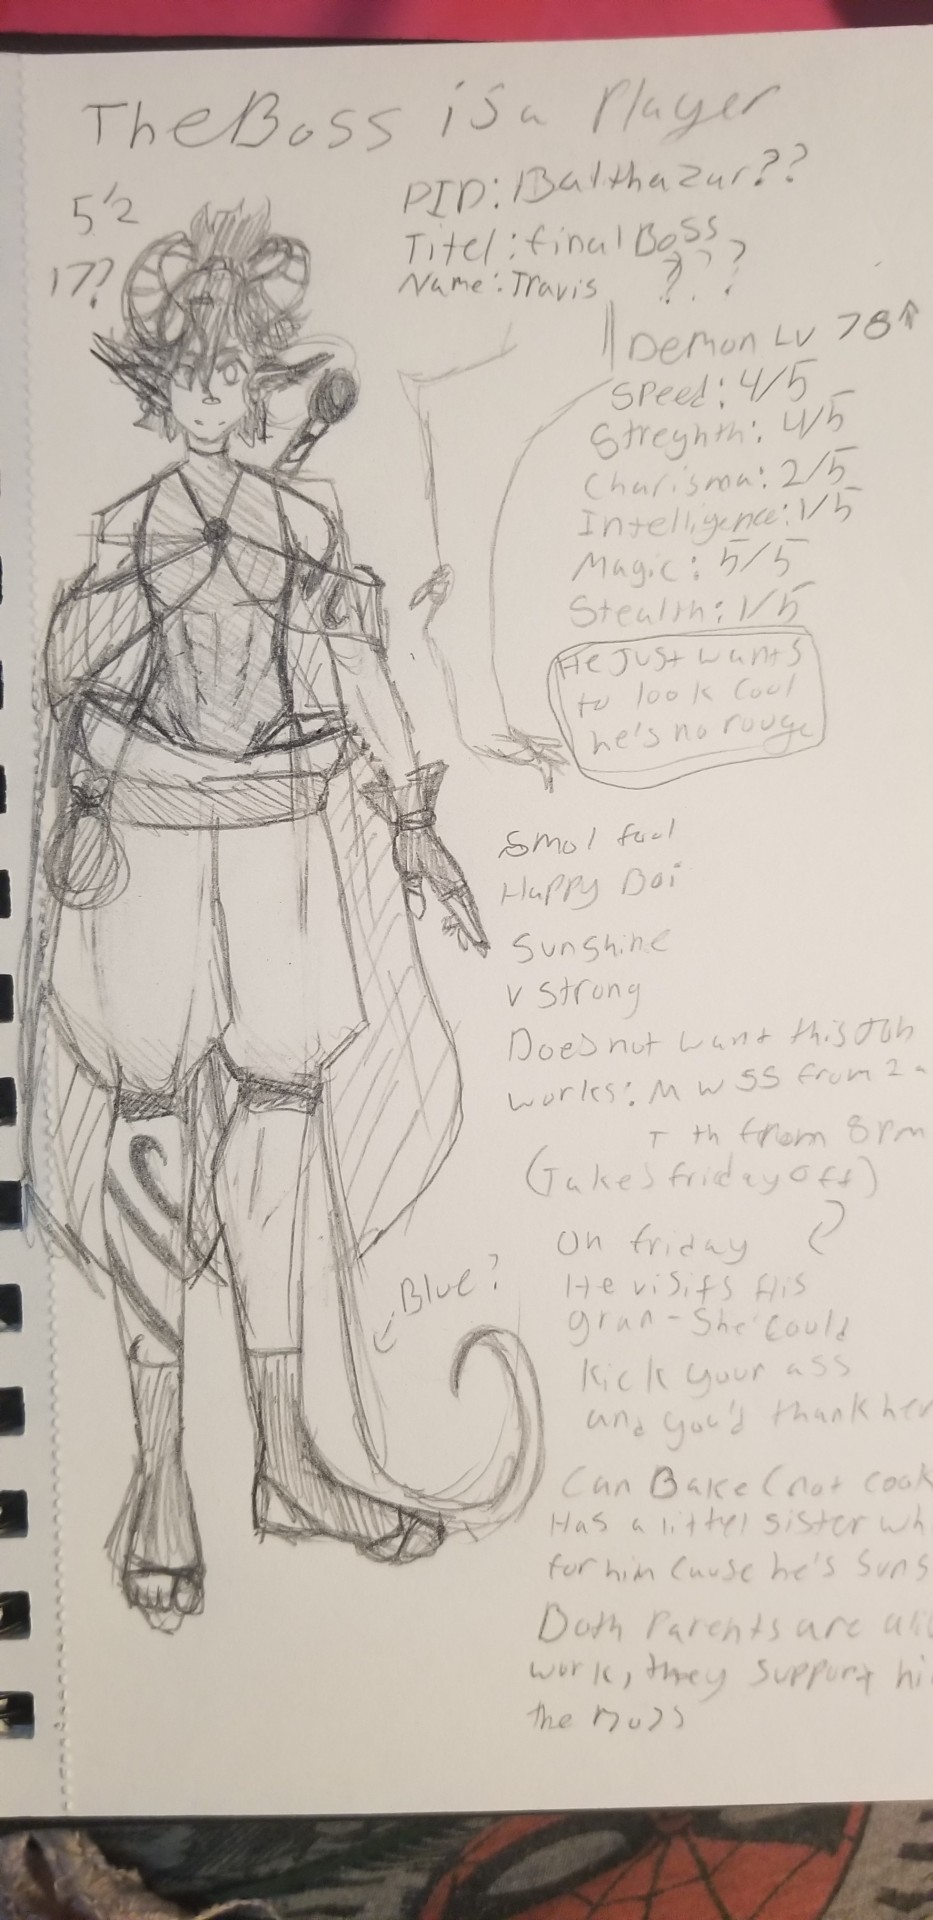 The Boss is a Player
5'2
17?
PID: Balthazar??
Titel: final Boss
???
Name: Travis
Demon Lv 78↑
Speed: 4/5
Streyhth: 4/5
Charisma: 2/5
Intelligence: 1/5
Magic: 5/5
Stealth: 1/5
He Just wants
to look Cool
he's no rouge
Smol fool
Happy Boi
Sunshine
v strong
Does not want this Job
works: M W SS from 2 a
T th from 8pm
(Takes friday off)
On friday
He visits His
gran - She could
kick your ass
and you'd thank her
Blue?
Can Bake (not cook
Has a littel sister wh
for him Cause he's Suns
Both Parents are ali
work, they support hi
the